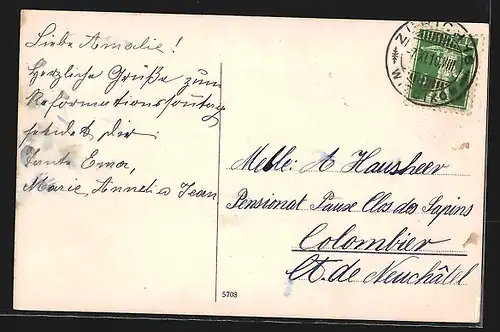 Liebe Amalie!
Herzliche Grüße zum
Reformationssontag
sendet dir
Tante Emma,
Marie Anneli & Jean
Melle: A Hausheer
Pensionat Pause Clos des Sapins
Colombier
Ct. de Neuchâtel
5708